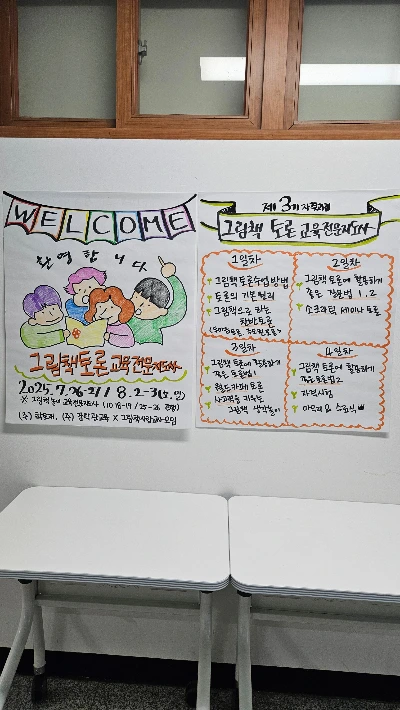 WELCOME
환영합니다
그림책토론 교육전문지도사
2025. 7. 26-27 / 8. 2-3 (토, 일)
그림책놀이 교육전문지도사
제3기 자격과정
그림책 토론 교육전문지도사
1일차
그림책 토론수업 방법
토론의 기본원리
그림책으로 하는
찬반토론
2일차
그림책 토론에 활용하기
좋은 질문법 1. 2
소크라틱 세미나 토론
3일차
그림책 토론에 활용하기
좋은 토론법 1
월드카페 토론
사고력을 키우는
그림책 생각놀이
4일차
그림책 토론에 활용하기
좋은 토론법 2
자격시험
마무리 & 수료식